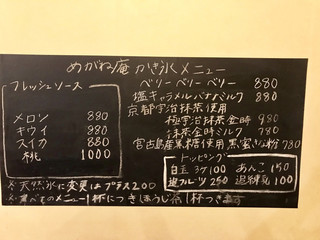 めがね庵 かき氷メニュー
フレッシュソース
メロン 880
キウイ 980
スイカ 880
桃 1000
ベリーベリーベリー 880
塩キャラメルバナナミルク 880
京都宇治抹茶使用
極宇治抹茶金時 980
抹茶金時ミルク 780
宮古島産黒糖使用 黒蜜きな粉 780
トッピング
白玉3ヶ 100 あんこ 150
追フルーツ 250 追練乳 100
※天然氷に変更はプラス200
※食べものメニュー1杯につきほうじ茶1杯つきます